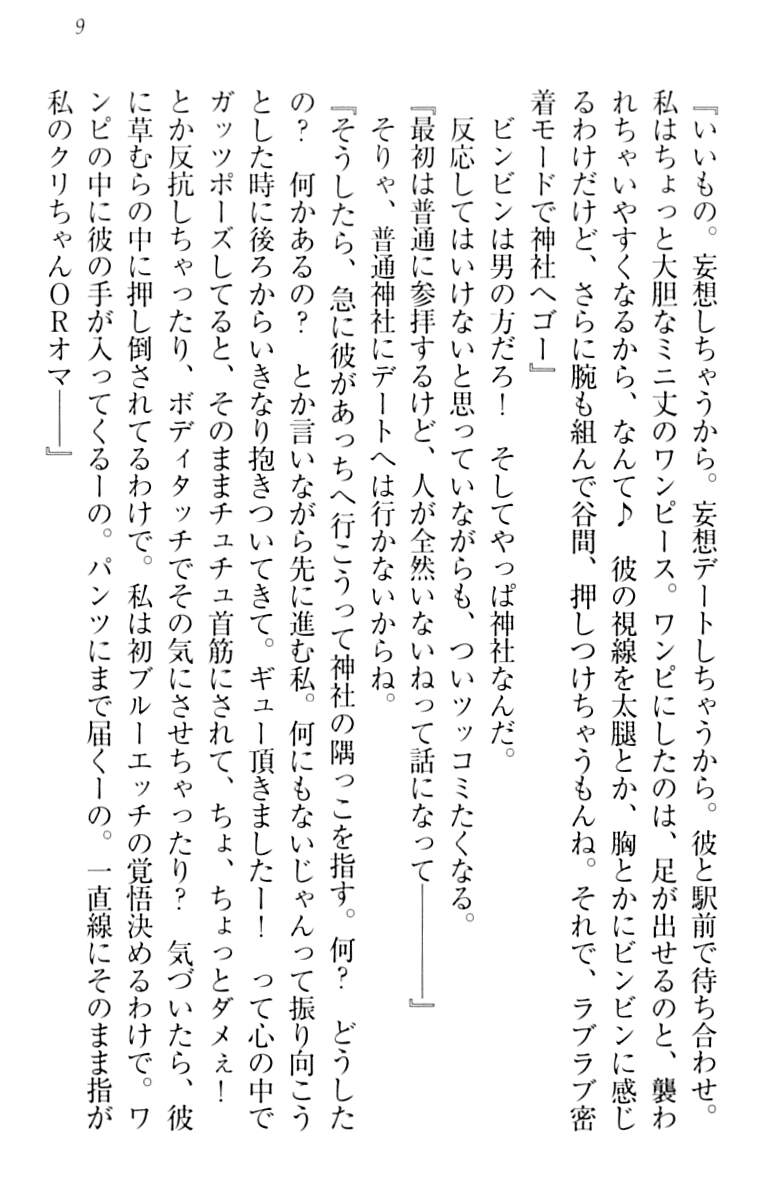 9
『いいもの。妄想しちゃうから。妄想デートしちゃうから。彼と駅前で待ち合わせ。
私はちょっと大胆なミニ丈のワンピース。ワンピにしたのは、足が出せるのと、襲わ
れちゃいやすくなるから、なんて♪　彼の視線を太腿とか、胸とかにビンビンに感じ
るわけだけど、さらに腕も組んで谷間、押しつけちゃうもんね。それで、ラブラブ密
着モードで神社へゴー』
　ビンビンは男の方だろ！　そしてやっぱ神社なんだ。
　反応してはいけないと思っていながらも、ついツッコミたくなる。
『最初は普通に参拝するけど、人が全然いないねって話になって――――』
　そりゃ、普通神社にデートへは行かないからね。
『そうしたら、急に彼があっちへ行こうって神社の隅っこを指す。何？　どうした
の？　何かあるの？　とか言いながら先に進む私。何にもないじゃんって振り向こう
とした時に後ろからいきなり抱きついてきて。ギュー頂きましたー！　って心の中で
ガッツポーズしてると、そのままチュチュ首筋にされて、ちょ、ちょっとダメぇ！
とか反抗しちゃったり、ボディタッチでその気にさせちゃったり？　気づいたら、彼
に草むらの中に押し倒されてるわけで。私は初ブルーエッチの覚悟決めるわけで。ワ
ンピの中に彼の手が入ってくるーの。パンツにまで届くーの。一直線にそのまま指が
私のクリちゃんORオマ――』